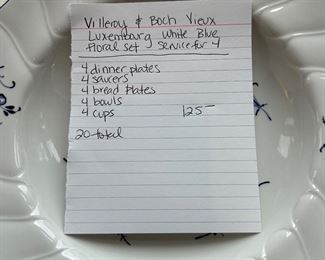 Villeroy & Boch Vieux
Luxembourg White Blue
Floral set Service for 4
4 dinner plates
4 saucers
4 bread plates
4 bowls
4 cups 125-
20 total